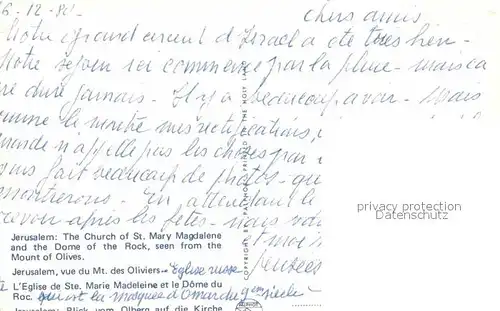 6-12-80
chers amis
Notre grand circuit d'Israel a été très bien -
Notre sejour ici commence par la pluie - mais ca
ne dure jamais - Il y a beaucoup a voir - Mais
comme le montre mes rectifications,
monde n'appelle pas les choses par
fait beaucoup de photos - que
montrerons - En attendant le
revoir après les fêtes - nous
pensées
PALPHOT PRINTED IN THE HOLY LAND
privacy protection
www.ansichtskartenversand.com
Jerusalem: The Church of St. Mary Magdalene
and the Dome of the Rock, seen from the
Mount of Olives.
Jerusalem, vue du Mt. des Oliviers - Eglise russe
L'Eglise de Ste. Marie Madeleine et le Dôme du
Roc. qui est la mosquée d'Omar du 9em siècle
Jerusalem: Blick vom Olberg auf die Kirche